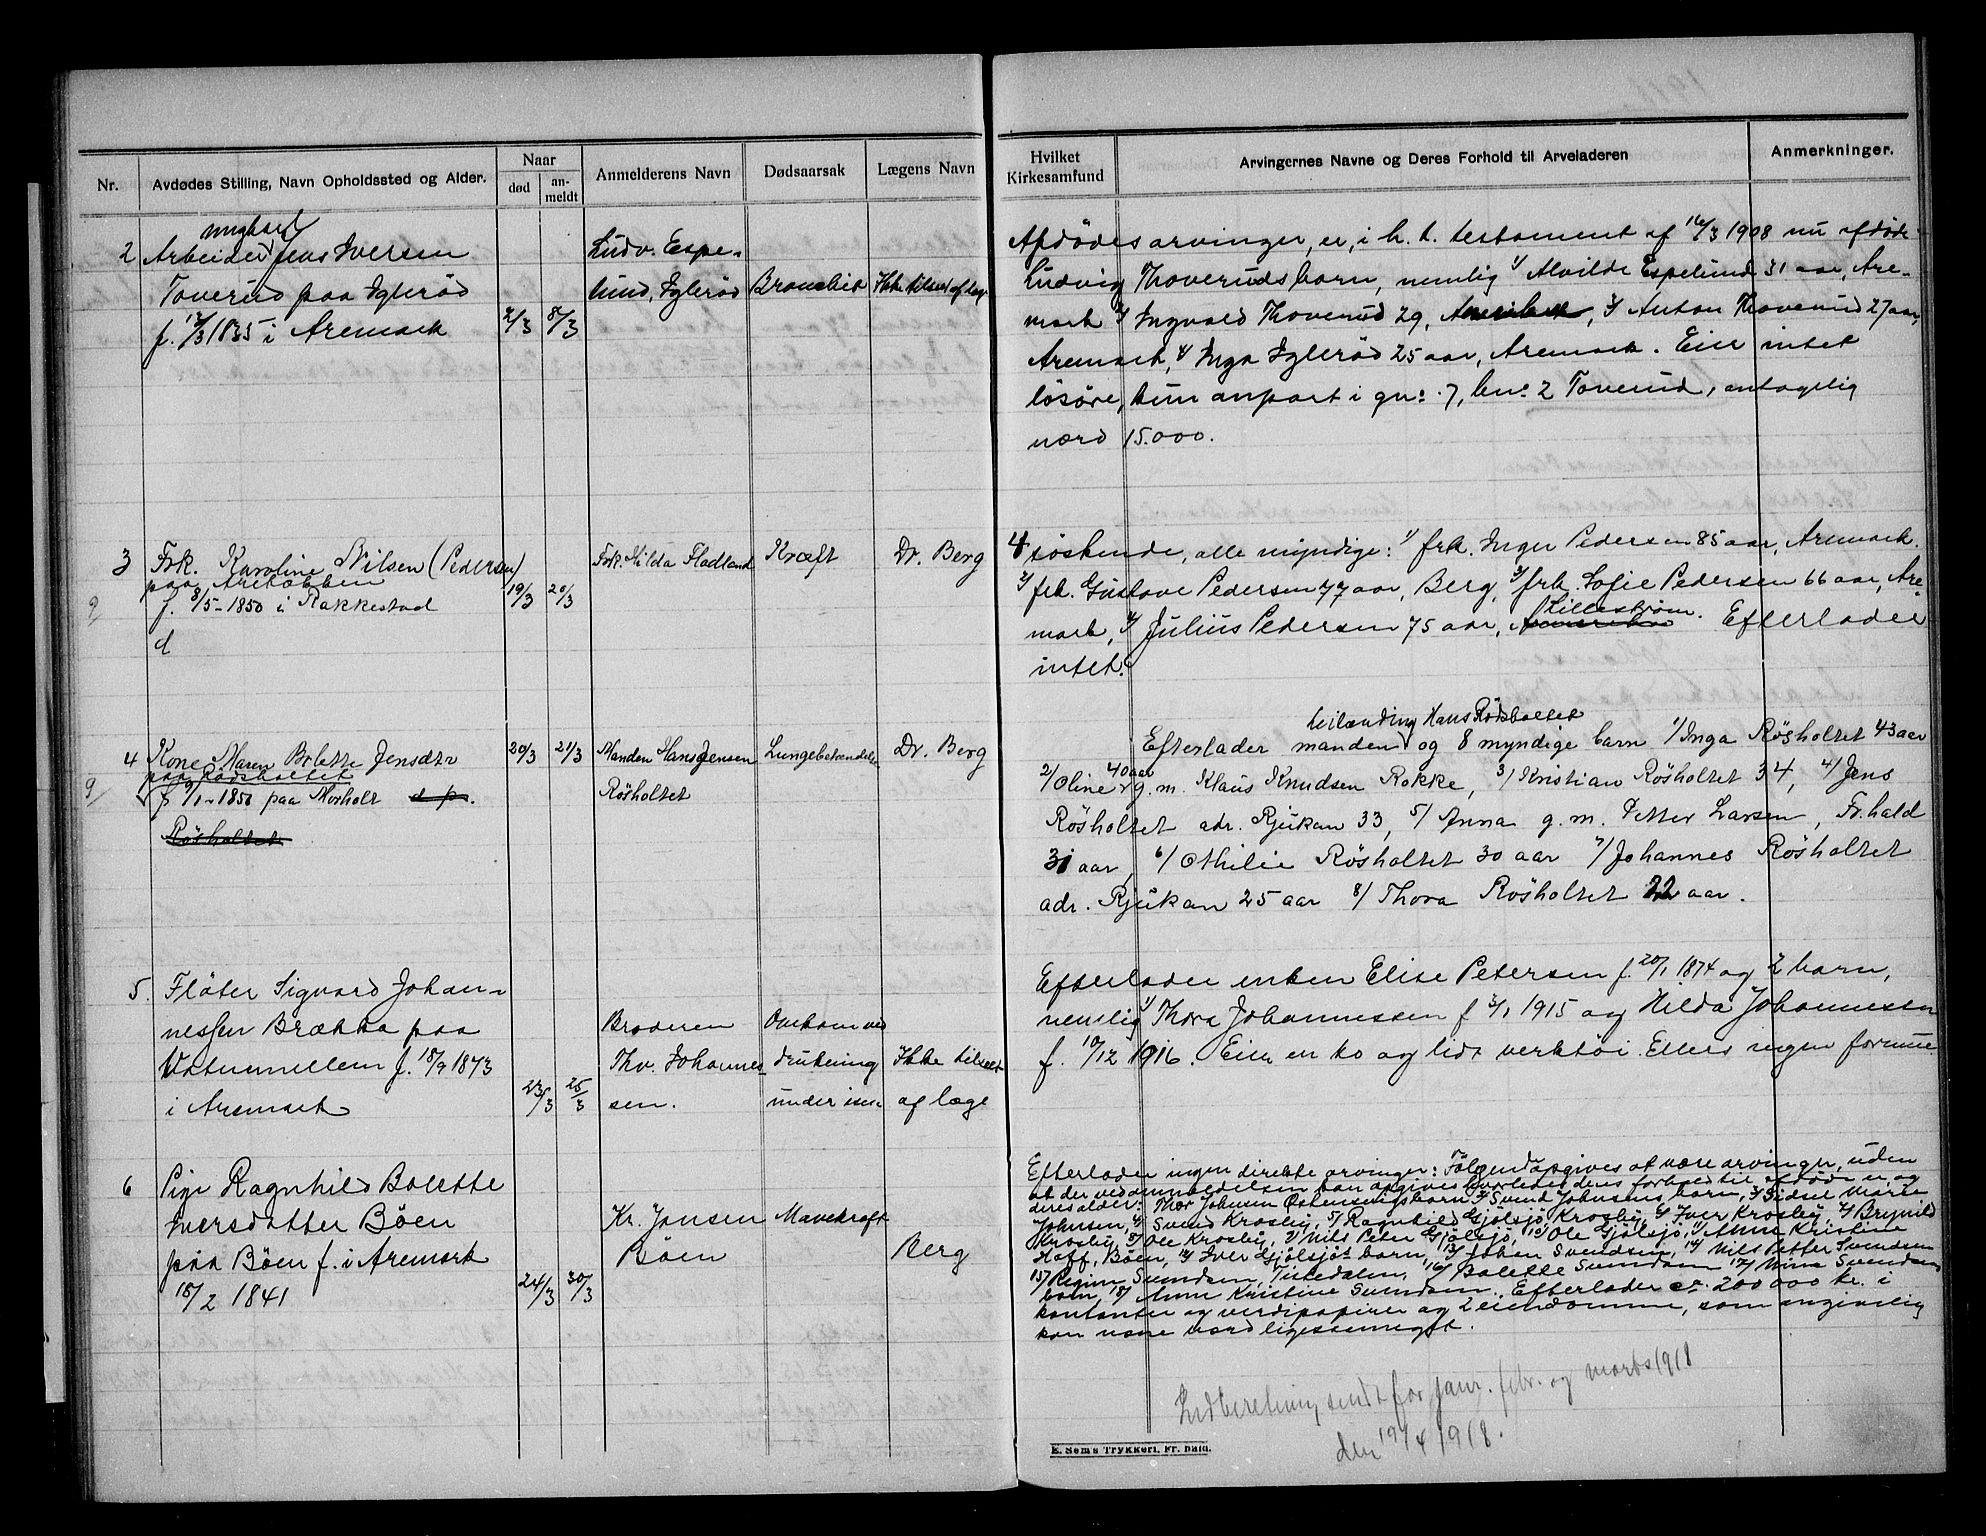 1918
Nr.
Avdødes Stilling, Navn Opholdssted og Alder.
Naar
død
an-
meldt
Anmelderens Navn
Dødsaarsak
Lægens Navn
Hvilket
Kirkesamfund
Arvingernes Navne og Deres Forhold til Arveladeren
Anmerkninger.
ungkarl
2 Arbeider Jens Iversen
Toverud paa Iglerød
f. 12/3 1835 i Aremark
2/3 8/3
Ludv. Espe-
lund, Iglerød
Bronchit
Ikke tilseet af læge
Afdødes arvinger, er, i h. t. testament af 16/3 1908 nu afdøde
Ludvig Thoveruds barn, nemlig 1/ Alvilde Espelund 31 aar, Are-
mark 2/ Ingvald Thoverud 29, 3/ Anton Thoverud 27 aar,
Aremark, 4/ Inga Iglerød 25 aar, Aremark. Eier intet
løsøre, kun anpart i gn: 7, bn: 2 Toverud, antagelig
værd 15.000.
3 Frk. Karoline Nilsen (Pedersen)
paa Arekobben
f. 8/5-1850 i Rakkestad
d
9
19/3 20/3
Frk. Hilda Fladland
Kræft
Dr. Berg
4 søskende, alle myndige: 1/ frk. Inger Pedersen 85 aar, Aremark.
2/ frk. Gustave Pedersen 77 aar, Berg, 3/ frk. Sofie Pedersen 66 aar, Are-
Lillestrøm.
mark, 4/ Julius Pedersen 75 aar, Amerika Efterlader
intet.
4 Kone Maren Bolette Jensdtr
paa Rødsholtet
f 9/1-1850 paa Norholt s. p.
Røsholtet
9/
20/3 21/3
Manden Hans Jensen
Røsholtet
Lungebetændelse
Dr. Berg
leilænding Hans Rødsholtet
Efterlader manden og 8 myndige barn 1/ Inga Røsholtet 43 aar
40 aar
2/ Oline g. m. Klaus Knudsen Rokke, 3/ Kristian Røsholtet 34, 4/ Jens
Røsholtet adr. Rjukan 33, 5/ Anna g. m. Petter Larsen, Fr.hald
31 aar, 6/ Othilie Røsholtet 30 aar 7/ Johannes Røsholtet
adr. Rjukan 25 aar 8/ Thora Røsholtet 22 aar.
5. Fløter Sigvard Johan-
nessen Brække paa
f. 18/9 1873
i Aremark
23/3 25/3
Broderen
Thv. Johannes-
sen.
Omkom ved
drukning
under isen
Ikke tilseet
af læge
Efterlader enken Elise Petersen f. 20/1 1874 og 2 barn,
nemlig 1/ Thora Johannessen f 3/1 1915 og Hilda Johannessen
f. 10/12 1916. Eier en ko og lidt verktøi. Ellers ingen formue
6 Pige Ragnhild Bolette
Iversdatter Bøen
paa Bøen f. i Aremark
18/2 1841
24/3 30/3
Kr. Jensen
Bøen
Mavekræft
Berg
Efterlader ingen direkte arvinger: Følgende opgives at være arvinger, uden
at der ved anmeldelsen kan opgives hvorledes deres forhold til afdøde er, og
deres alder: Thor Johnsen Østensvigs barn, 2/ Svend Johnsens barn, 3/ Sidsel Marie
Johnsen, 4/ Svend Krosby, 5/ Ragnhild Gjølsjø Krosby, 6/ Iver Krosby, 7/ Brynild
Krosby, 8/ Ole Krosby, 9/ Nils Peter Gjølsjø, 10/ Ole Gjølsjø, 11/ Anne Kristine
Hoff, Bøen, 12/ Iver Gjølsjøs barn, 13/ Johan Svendsen, 14/ Nils Petter Svendsen
15/ Svendsen, Tistedalen, 16/ Bolette Svendsen 17/ Svendsens
barn, 18/ Anne Kristine Svendsen. Efterlader ca. 200000 kr. i
kontanter og verdipapirer og 2 eiendomme, som angivelig
kan være værd ligesaameget.
Indberetning sendt for janr. febr. og marts 1918
den 19/4 1918.
E. Sem's Trykkeri, Fr.hald.